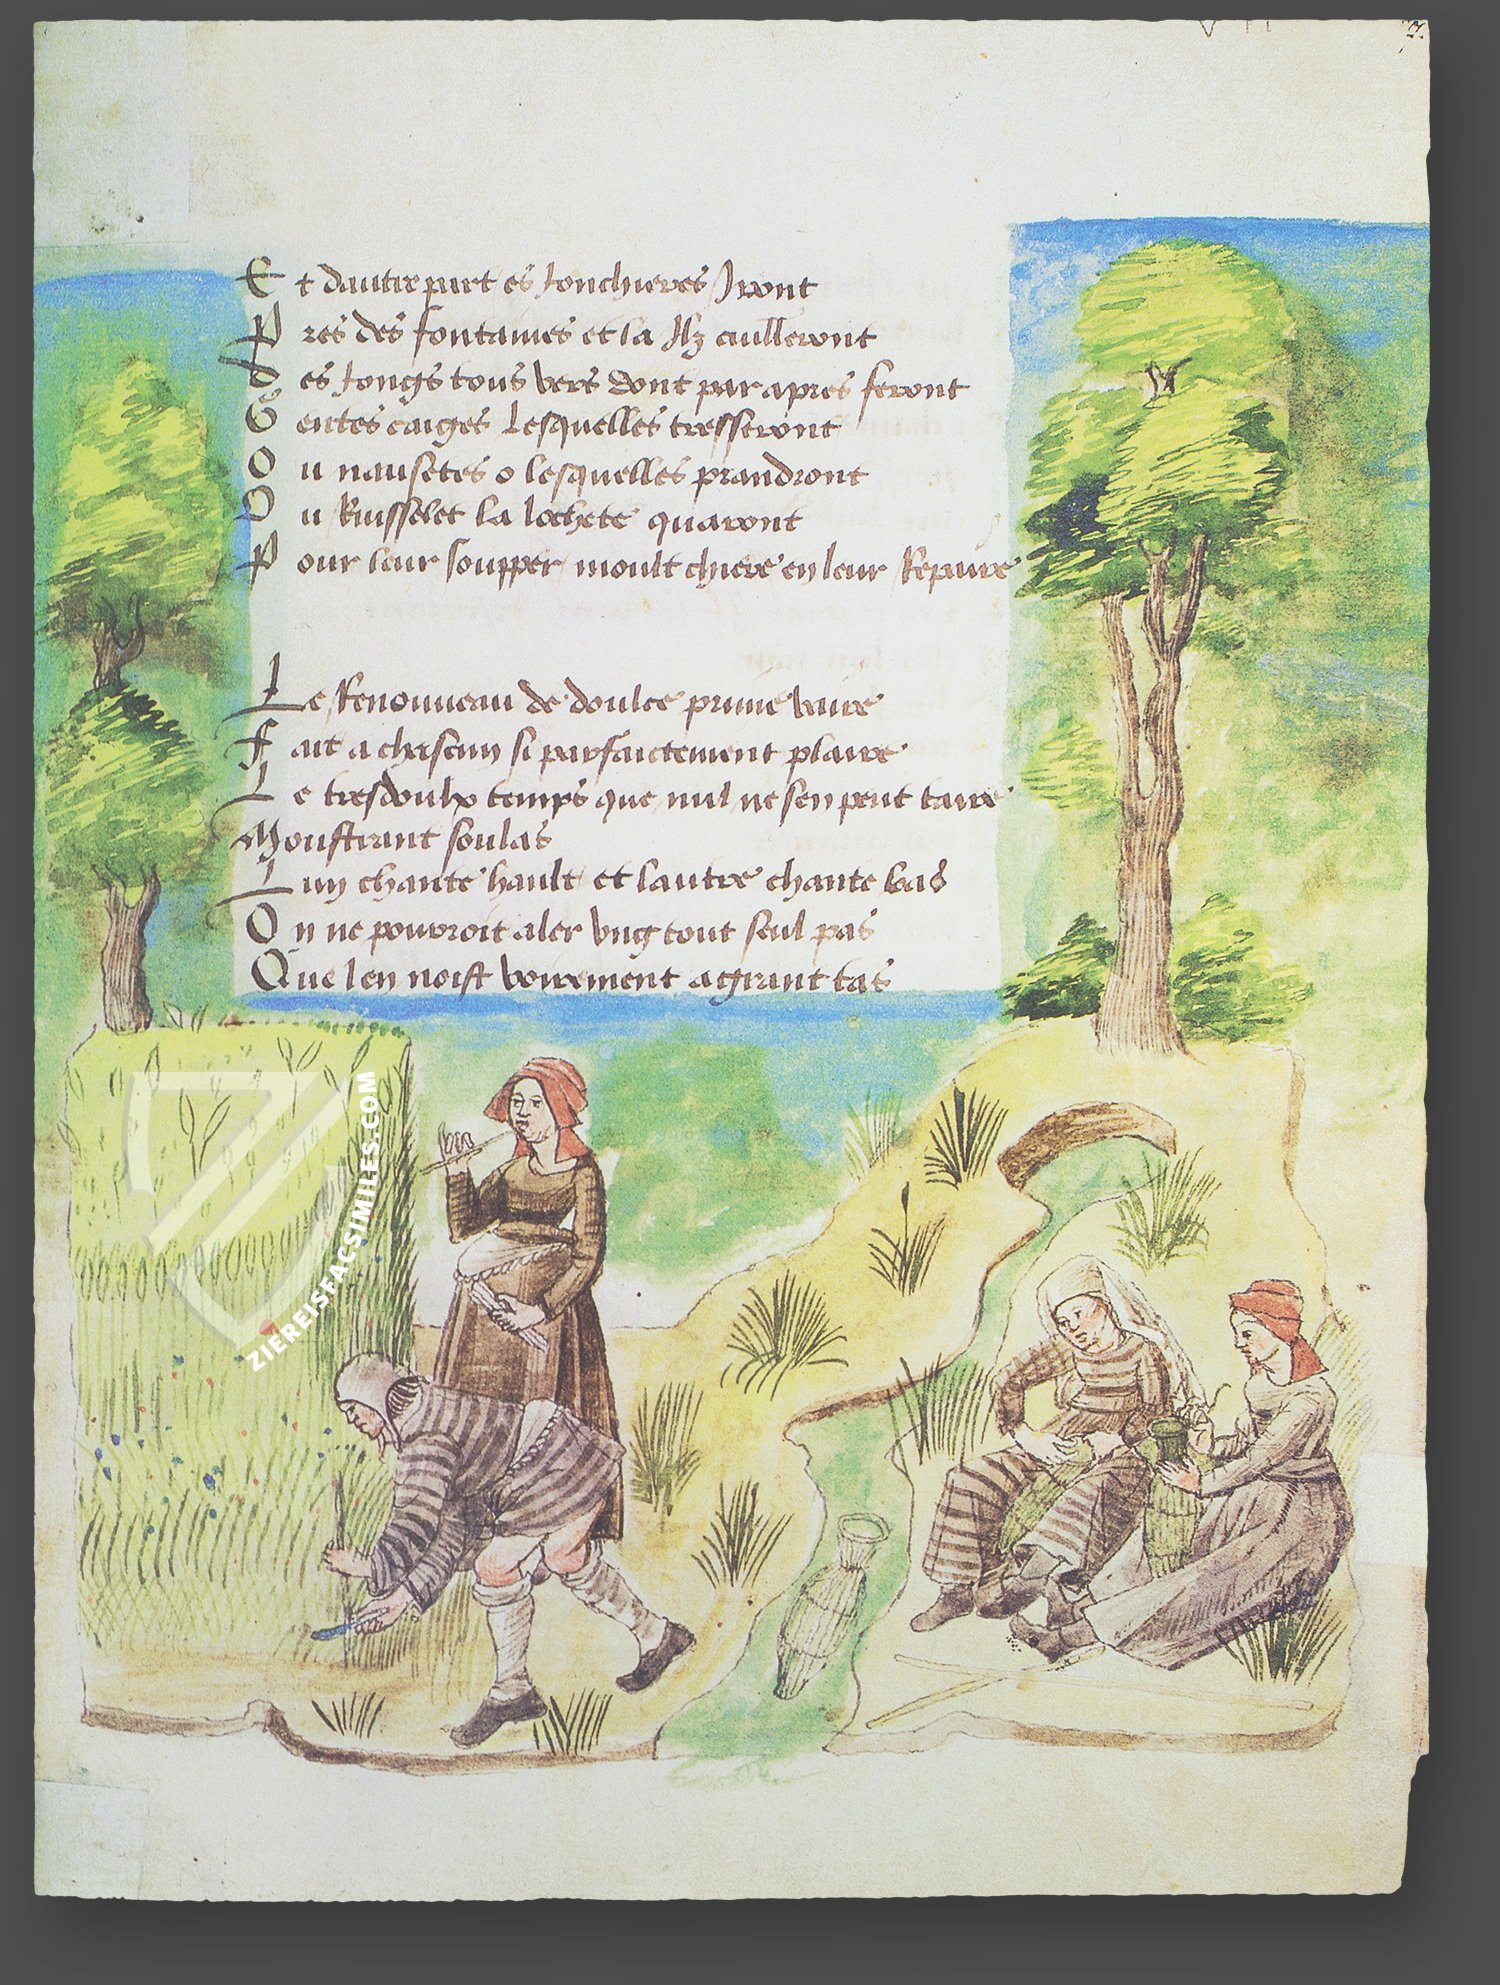 Et daultre part es Jonchieres Jront
Pres des fontaines et la Ilz cuilleront
des Joncgs tous vers dont par apres feront
Gentes caiges Lesquelles tresseront
Ou nassetes o lesquelles prandront
Du Ruisselet la lochete quaront
Pour leur soupper moult chiere en leur Repaire
Le Renouueau de doulce prime vaire
fait a chascun si parfaictement plaire
Le tresdoulx temps que nul ne sen peut taire
Moustrant soulas
Lun chante hault et lautre chante bas
On ne pouroit aler vng tout seul pas
Que len noist voirement a grant tas
ZIEREISFACSIMILES.COM